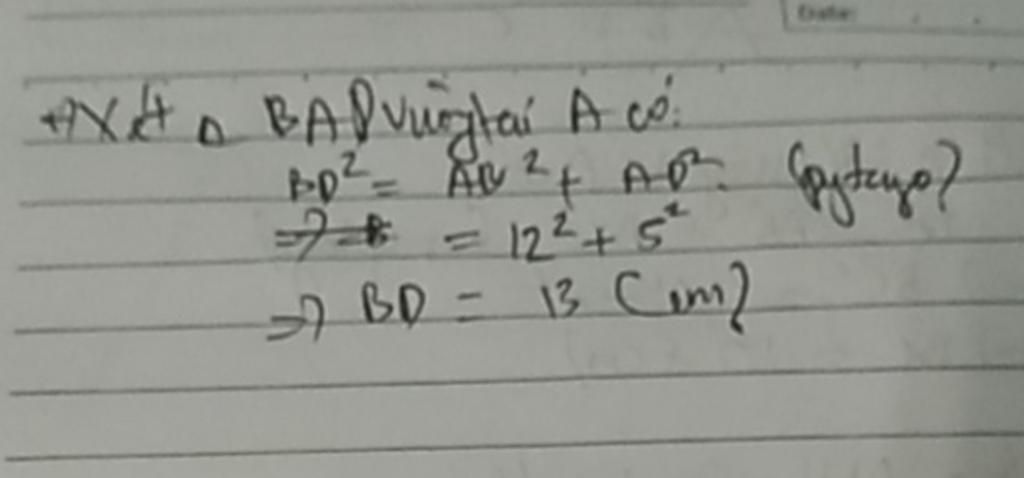 Date:
+) Xét Δ BAD vuông tại A có:
BD² = AB² + AD² (pytago)
= 12² + 5²
=> BD = 13 (cm)